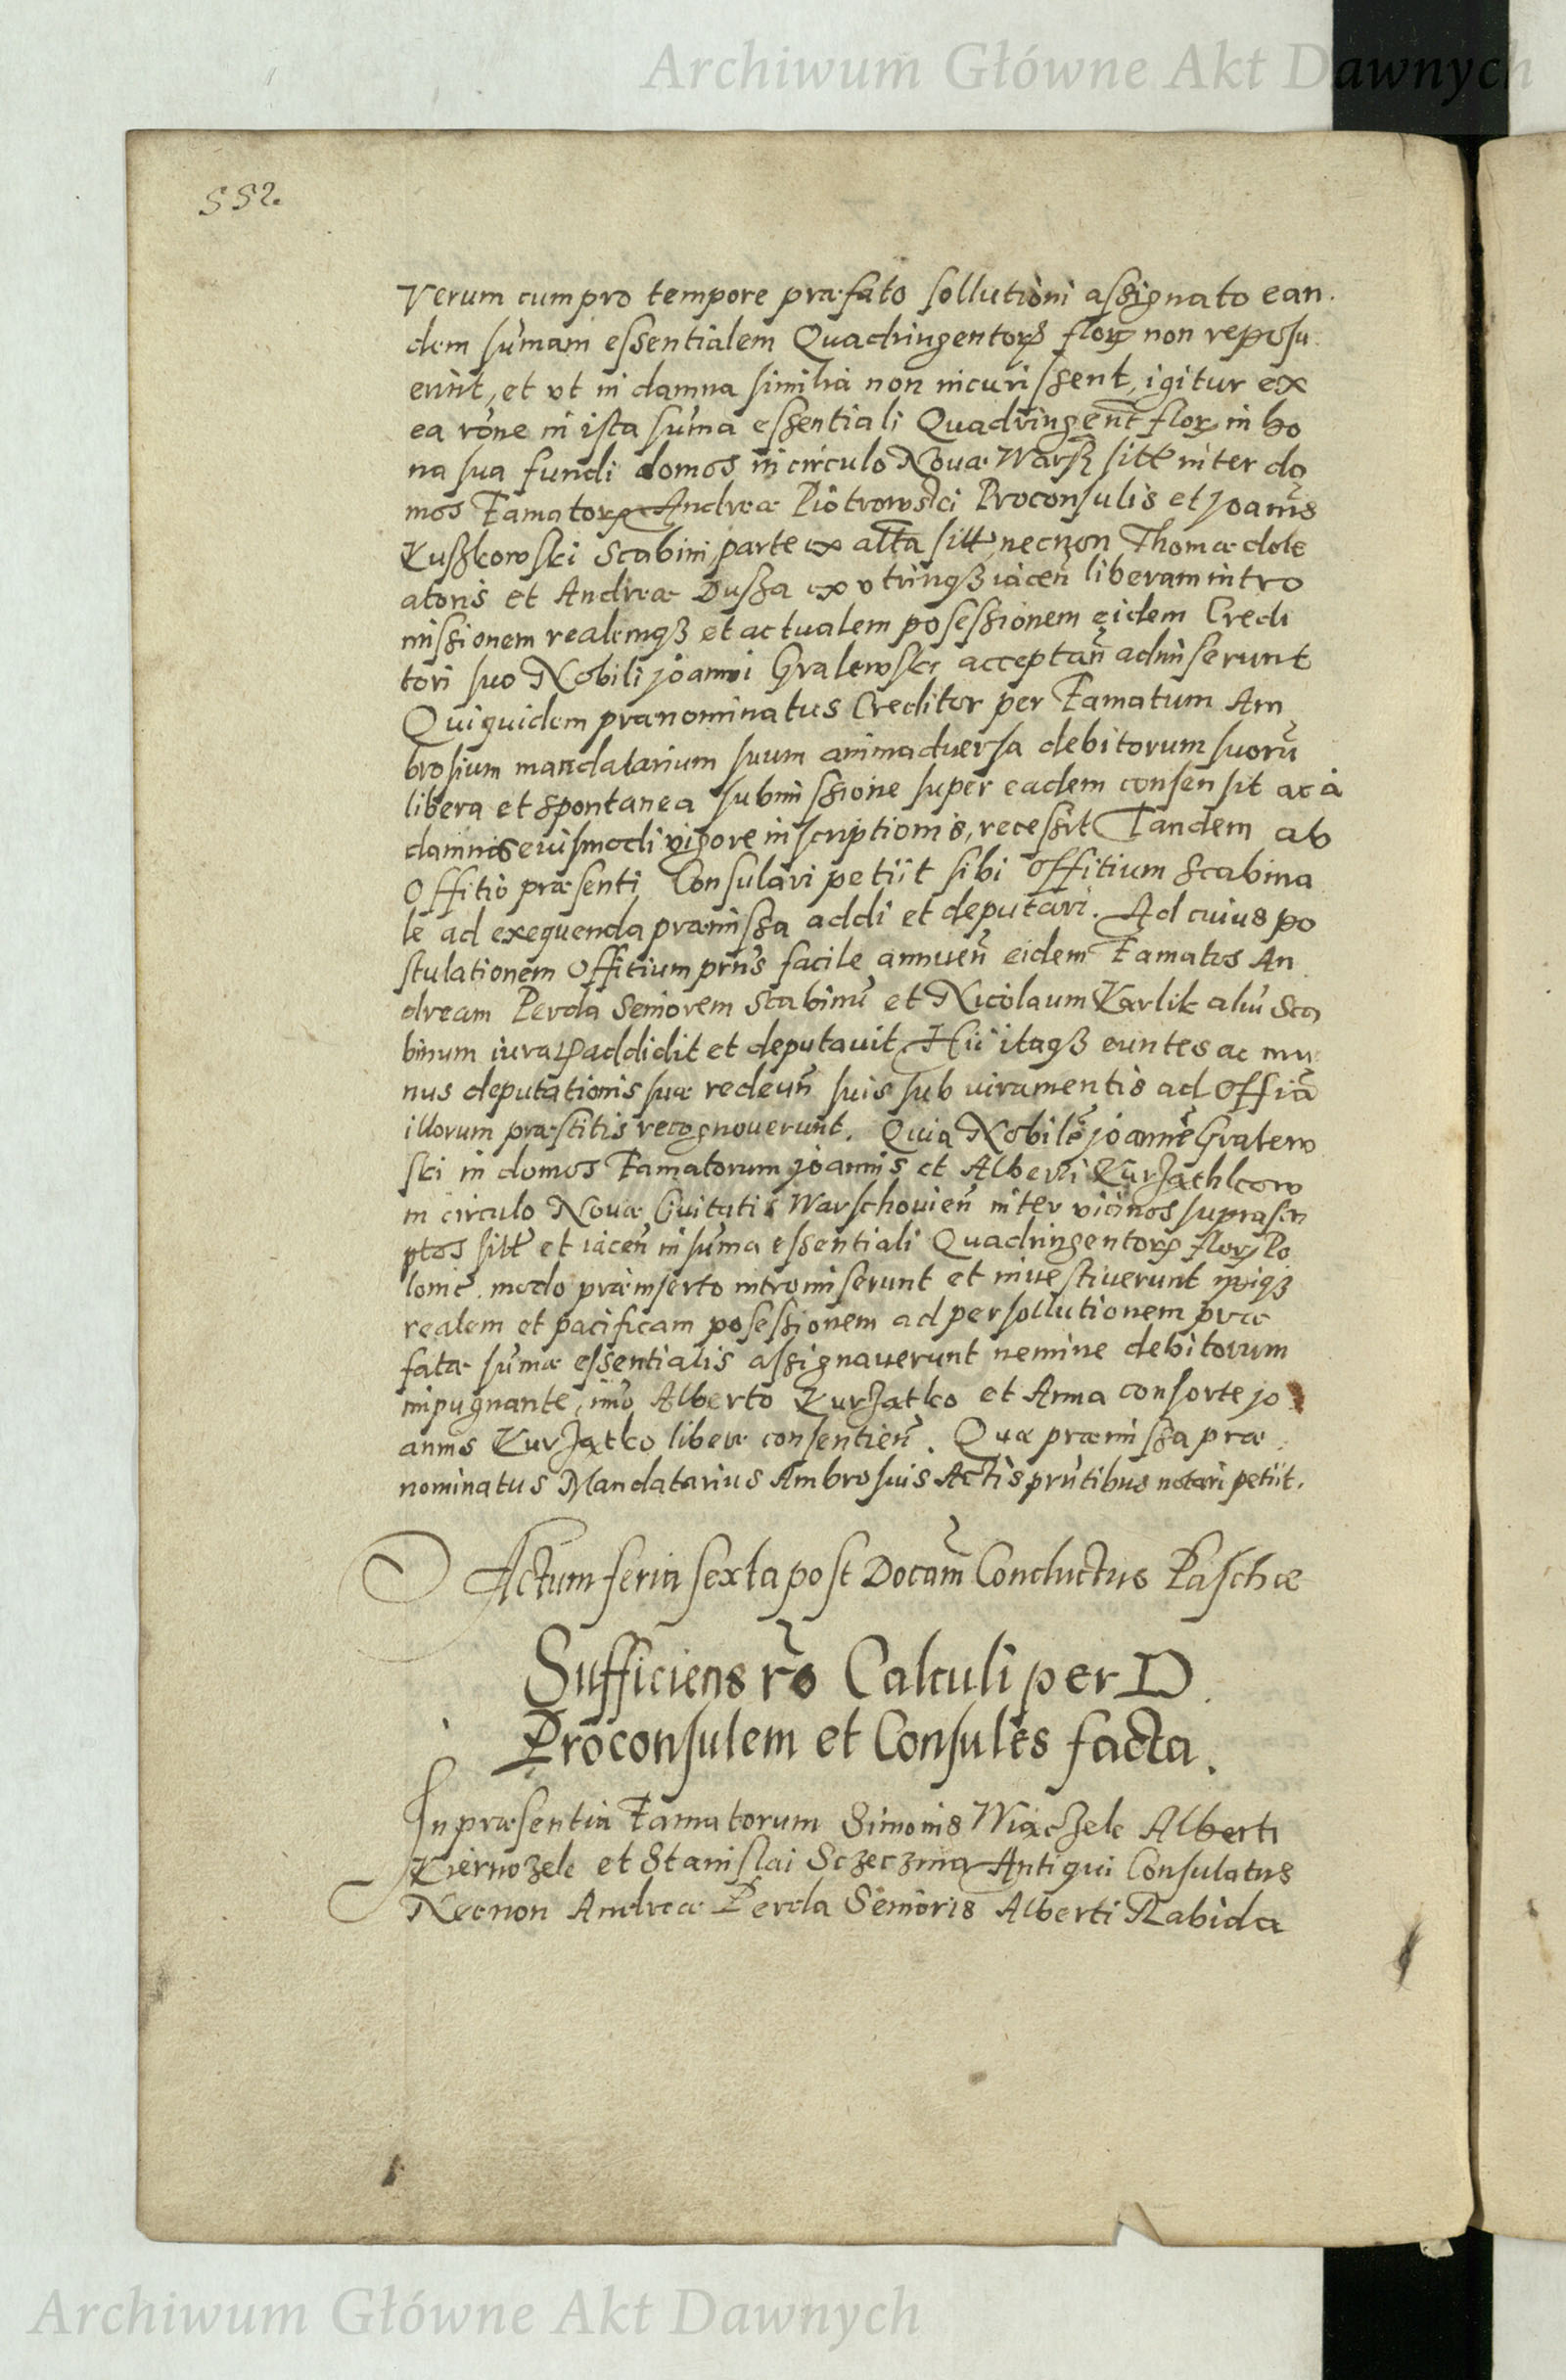 Archiwum Główne Akt Dawnych
552.
Verum cum pro tempore præfato sollutioni assignato ean.
dem sum̃am essentialem Quadringentorꝝ florꝝ non reposu
erint, et vt in damna similia non incurissent, igitur ex
ea rõne in ista sum̃a essentiali Quadringent̃ florꝝ in bo
na sua fundi domos in circulo Nouæ Warss sitt inter do
mos Famatorꝝ Andreæ Piotrowski Proconsulis et Joañis
Kuszkowski Scabini parte ex alt̃a sitt necnon Thomæ dole
atoris et Andreæ Dusza ex vtrinqꝫ iaceñ liberam intro
missionem realemqꝫ et actualem posessionem eidem Credi
tori suo Nobili joanni Gralewski acceptañ admiserunt
Qui quidem prænominatus Creditor per Famatum Am
brosium mandatarium suum animaduersa debitorum suorũ
libera et spontanea submissione super eadem consensit ac à
damnis eiusmodi vigore inscriptionis, recessit Tandem ab
Offitio præsenti Consulari petiit sibi Offitium Scabina
le ad exequenda præmissa addi et deputari. Ad cuius po
stulationem Offitium prñs facile annueñ eidem Famatos An
dream Perda Seniorem Scabinũ et Nicolaum Karlik aliũ Sca
binum iuraꝝ addidit et deputauit Hii itaqꝫ euntes ac mu
nus deputationis suæ redeuñ suis sub iuramentis ad Officia
illorum præstitis recognouerunt. Quia Nobilẽ joannẽ Gralew
ski in domos Famatorum joannis et Alberti Kurzathkow
in circulo Nouæ Ciuitatis Warschouieñ inter vicinos suprascri
ptos sitt et iaceñ in sum̃a essentiali Quadringentorꝝ florꝝ Po
lonic̃ modo præinserto intromiserunt et inuestiuerunt ipsiqꝫ
realem et pacificam posessionem ad persollutionem præ
fatæ sum̃æ essentialis assignauerunt nemine debitorum
impugnante, im̃o Alberto Kurzatko et Anna consorte jo
annis Kurzatko liberæ consentieñ. Quæ præmissa præ
nominatus Mandatarius Ambrosius Actis prñtibus notari petiit.
Actum feria sexta post Docam̃ Conductus Paschæ
Sufficiens rõ Calculi per D.
Proconsulem et Consules facta.
In præsentia Famatorum Simonis Wiączek Alberti
Kiernozek et Stanislai Sczeczina Antiqui Consulatus
Necnon Andreæ Perda Senioris Alberti Rabida
Archiwum Główne Akt Dawnych